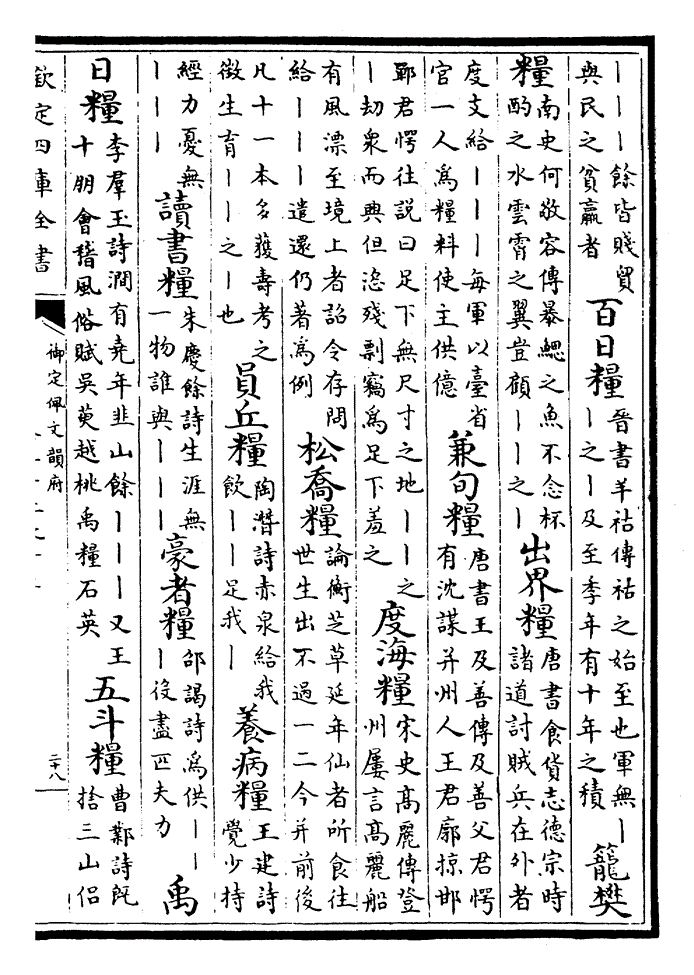 ———餘皆賤貿與民之貧羸者百日糧晉書羊祜傳祜之始至也軍無—之—及至季年有十年之積籠樊
糧南史何敬容傳暴鰓之魚不念杯酌之水雲霄之翼豈顧——之—出界糧唐書食貨志德宗時諸道討賊兵在外者
度支給———每軍以臺省官一人爲糧料使主供億兼旬糧唐書王及善傳及善父君愕有沈謀并州人王君廓掠邯
鄲君愕往説曰足下無尺寸之地——之—劫衆而興但恣殘剽竊爲足下羞之度海糧宋史高麗傳登州屢言高麗船
有風漂至境上者詔令存問給———遣還仍著爲例松喬糧論衡芝草延年仙者所食往世生出不過一二今并前後
凡十一本多獲壽考之徵生育——之—也員丘糧陶潛詩赤泉給我飲——足我—養病糧王建詩覺少持
經力憂無———讀書糧朱慶餘詩生涯無一物誰與———豪者糧邵謁詩爲供———役盡匹夫力禹
日糧李羣玉詩澗有堯年韭山餘———又王十朋會稽風俗賦吳萸越桃禹糧石英五斗糧曹鄴詩旣捨三山侶
欽定四庫全書
御定佩文韻府
二十八